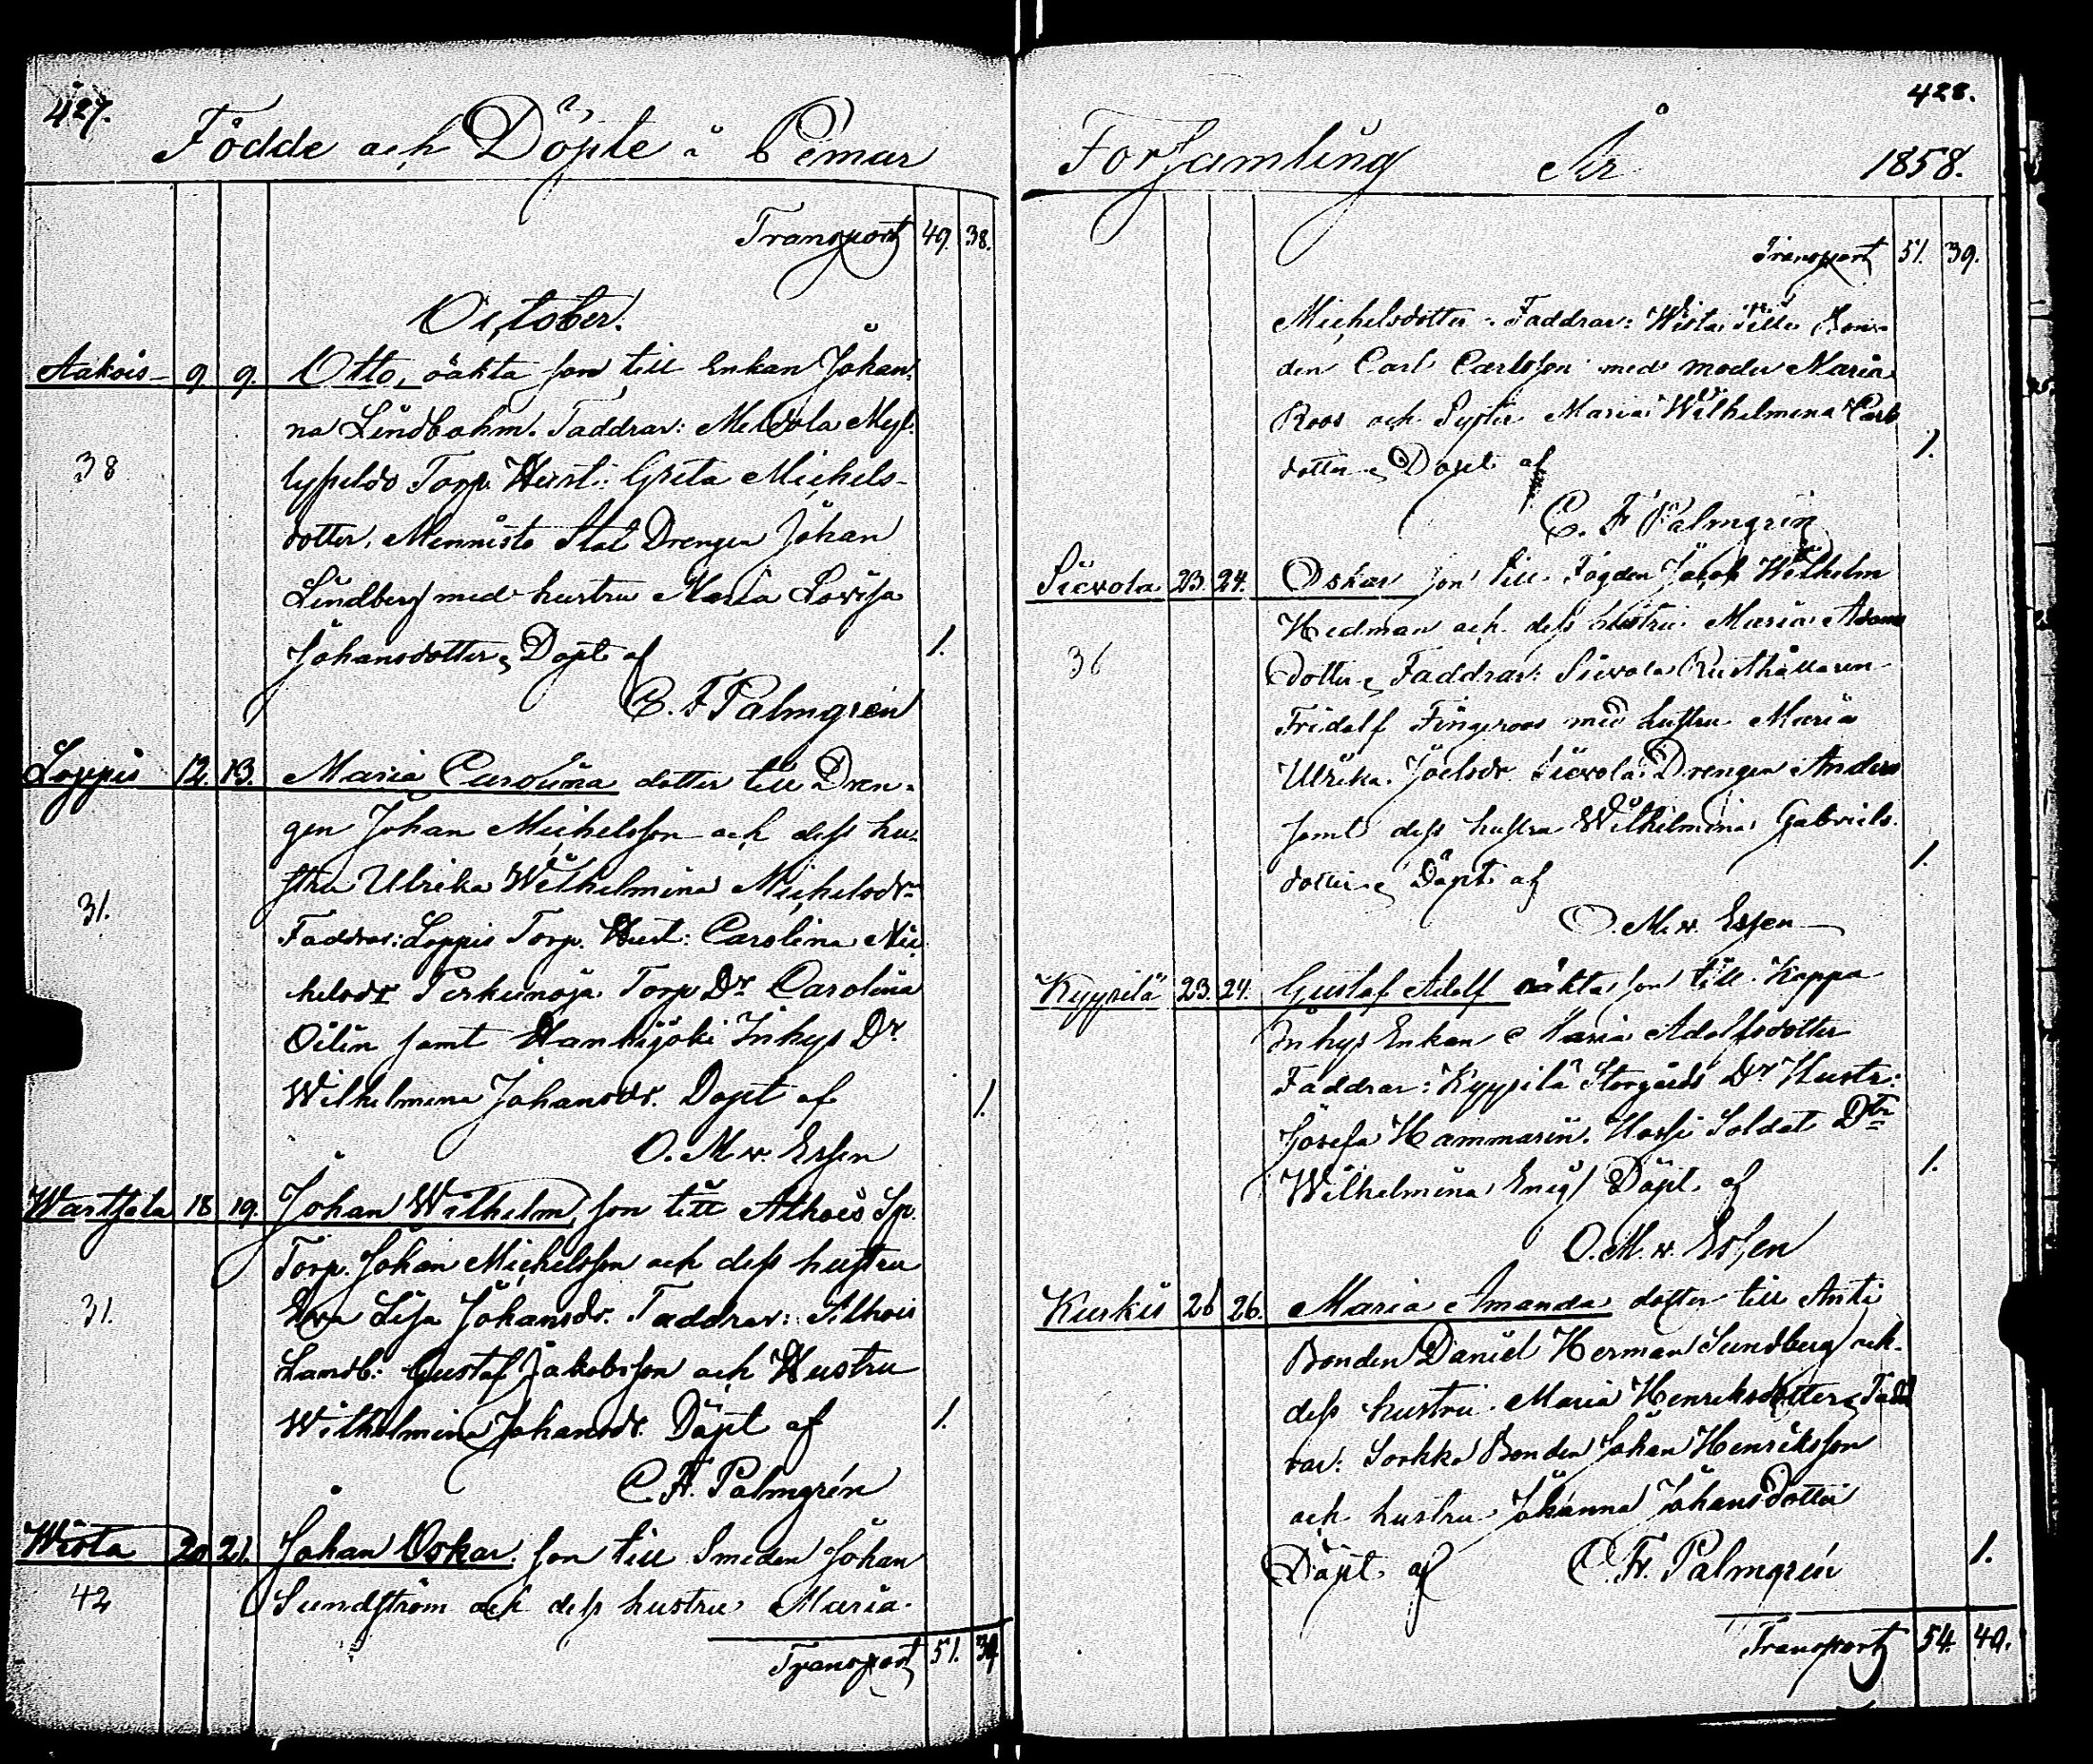 427.
Födde och Döpte i Pemar
Transport 49. 38.
October.
Aakois 9 9. Otto, oäkta son till Enkan Johan-
na Lindbohm. Faddrar: Meldola Myl-
38 lypeldo Torp. Hust: Greta Michels-
dotter, Mennisto Stat Drengen Johan
Lindberg med hustru Maria Lovisa
Johansdotter, Döpt af 1.
C. F Palmgren
Loppis 12. 13. Maria Carolina dotter till Dren-
gen Johan Michelsson och dess hu-
31. stru Ulrika Wilhelmina Michelsdr
Faddrar: Loppis Torp. Hust: Carolina Mic
helsdr Torp Dr Carolina
Oilin samt Hanhijoki Inhys Dr
Wilhelmina Johansdr. Döpt af 1.
O. M v. Essen
Wartsala 18 19. Johan Wilhelm, son till Alhois Sp.
Torp. Johan Michelsson och dess hustru
31. Eva Lisa Johansdr. Faddrar: Alhois
Landb: Gustaf Jakobsson och Hustru
Wilhelmina Johansdr. Döpt af 1.
C. F. Palmgrén
Wista 20 21. Johan Oskar. son till Smeden Johan
42 Sundström och dess hustru Maria
Transport 51. 39
428.
Forsamling År 1858.
Transport 51. 39.
Michelsdotter. Faddrar: Wista Bon-
den Carl Carlsson med moder Maria
Roos och Syster Maria Wilhelmina Carls
dotter, Döpt af 1.
C. F Palmgrén
Sievola 23. 24. Oskar son till Fogden Jacob Wilhelm
Hedman och dess hustru Maria Adams
36 dotter, Faddrar: Sievola Rusthållaren
Fridolf Fingerroos med hustru Maria
Ulrika Joelsdr Sievola Drengen Anders
samt dess hustru Wilhelmina Gabriels-
dotter, Döpt af 1.
O. M. v. Essen
Kyypilä 23. 24. Gustaf Adolf oäkta son till Kappa
Inhys Enkan Maria Adolfsdotter
Faddrar: Kyypilä Storgårds Dr Hustr:
Josefa Hammarin. Soldat Dtr
Wilhelmina Enig, Döpt af 1.
O. M. v. Essen
Kurkis 26 26. Maria Amanda dotter till Anti
Bonden Daniel Herman Sundberg och
dess hustru Maria Henriksdotter, Fadd
rar: Sorkka Bonden Johan Henriksson
och hustru Johanna Johansdotter
Döpt af C. F. Palmgrén 1.
Transport 54. 40.